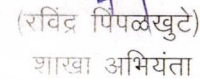 (रविंद्र पिंपळखुटे)
शाखा अभियंता